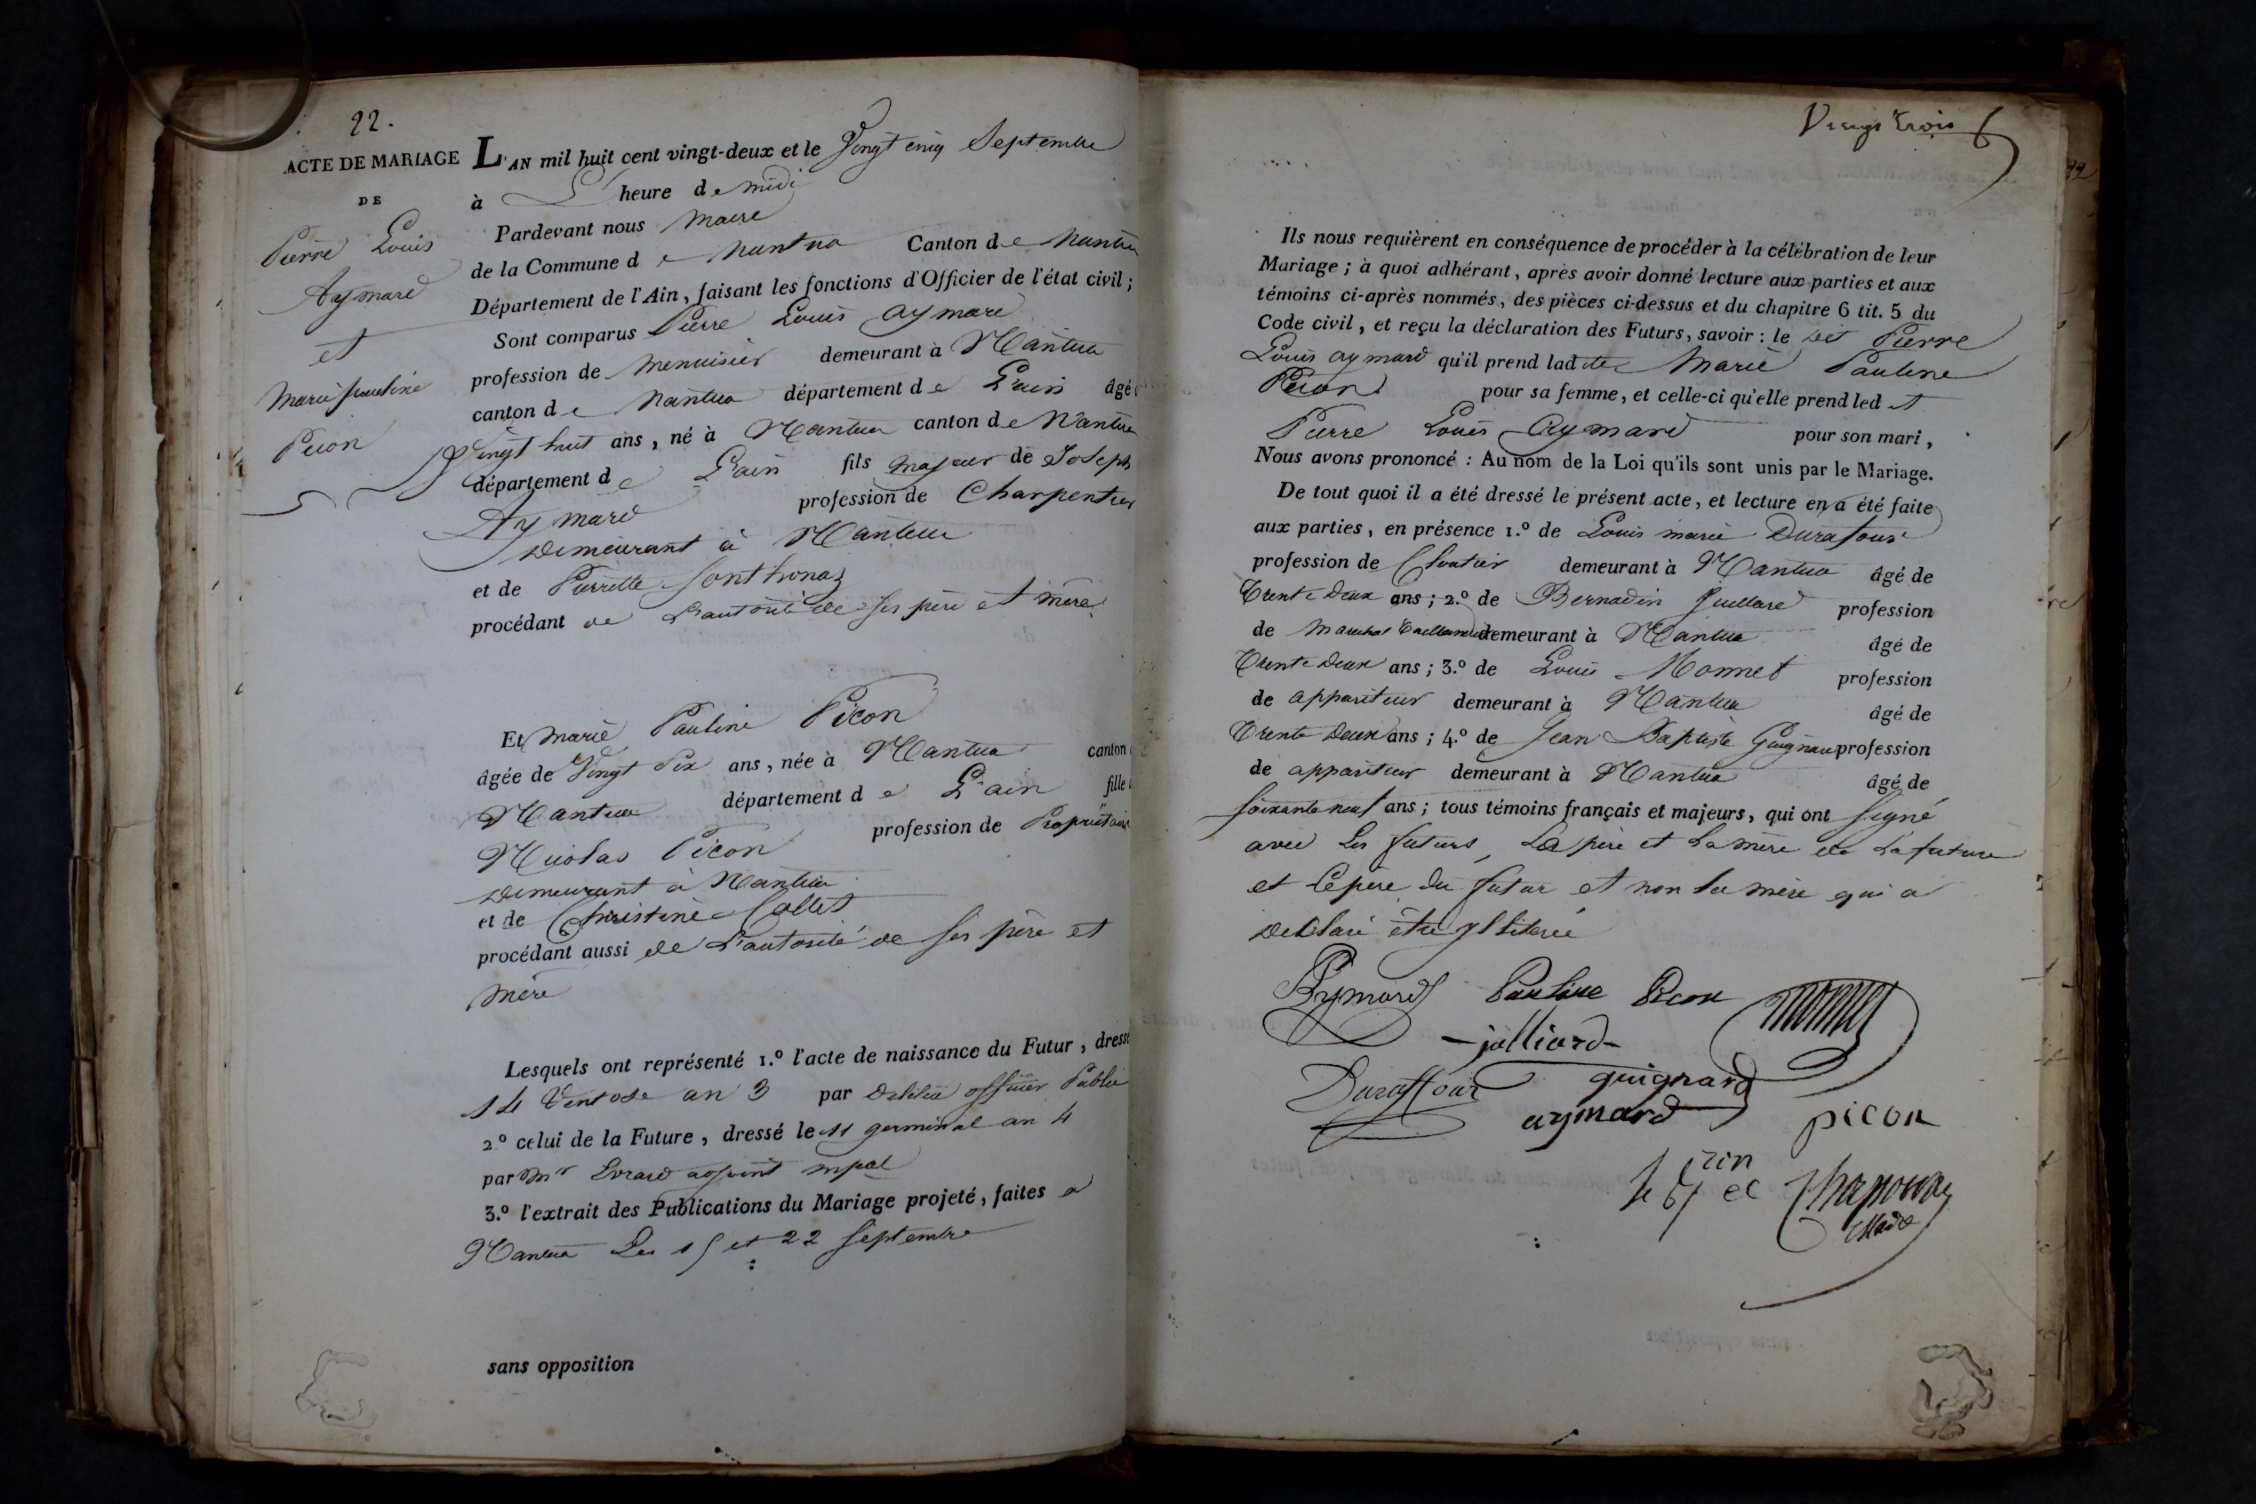 22.
ACTE DE MARIAGE
DE
Pierre Louis
Aymard
et
Marie pauline
Picon
L'AN mil huit cent vingt-deux et le Vingt cinq Septembre
à L' heure de midi
Pardevant nous Maire
de la Commune de Nantua Canton de Nantua
Département de l'Ain, faisant les fonctions d'Officier de l'état civil;
Sont comparus Pierre Louis Aymard
profession de Menuisier demeurant à Nantua
canton de Nantua département de L'ain âgé
Vingt huit ans, né à Nantua canton de Nantua
département de L'ain fils majeur de Joseph
Aymard profession de Charpentier
demeurant à Nantua
et de Pierrette Sonthonaz
procédant de L'autorité de ses père et mère
Et Marie Pauline Picon
âgée de Vingt Six ans, née à Nantua canton
Nantua département de L'ain fille
Nicolas Picon profession de Propriétaire
demeurant à Nantua
et de Christine Collet
procédant aussi de L'autorité de ses père et
mère
Lesquels ont représenté 1.º l'acte de naissance du Futur, dressé
14 Ventose an 3 par officier Public
2º celui de la Future, dressé le 11 germinal an 4
par Mr Evrard adjoint mpal
3.º l'extrait des Publications du Mariage projeté, faites a
Nantua Les 15 et 22 Septembre
sans opposition
Vingt trois
Ils nous requièrent en conséquence de procéder à la célébration de leur
Mariage; à quoi adhérant, après avoir donné lecture aux parties et aux
témoins ci-après nommés, des pièces ci-dessus et du chapitre 6 tit. 5 du
Code civil, et reçu la déclaration des Futurs, savoir: le dit Pierre
Louis Aymard qu'il prend ladite Marie Pauline
Picon pour sa femme, et celle-ci qu'elle prend ledit
Pierre Louis Aymard pour son mari,
Nous avons prononcé: Au nom de la Loi qu'ils sont unis par le Mariage.
De tout quoi il a été dressé le présent acte, et lecture en a été faite
aux parties, en présence 1.º de Louis marie Durafour
profession de Cloutier demeurant à Nantua âgé de
Trente Deux ans; 2.º de Bernadin Juillard profession
de Marechal Taillandier demeurant à Nantua âgé de
Trente Deux ans; 3.º de Louis Monnet profession
de appariteur demeurant à Nantua âgé de
Trente Deux ans; 4.º de Jean Baptiste Guignard profession
de appariteur demeurant à Nantua âgé de
Soixante neuf ans; tous témoins français et majeurs, qui ont signé
avec Les futurs, Le père et La mère de La future
et Le père du futur et non La mère qui a
déclaré être yllitérée
Aymard Pauline Picon monnet
julliard
Duraffour guignard
aymard picon